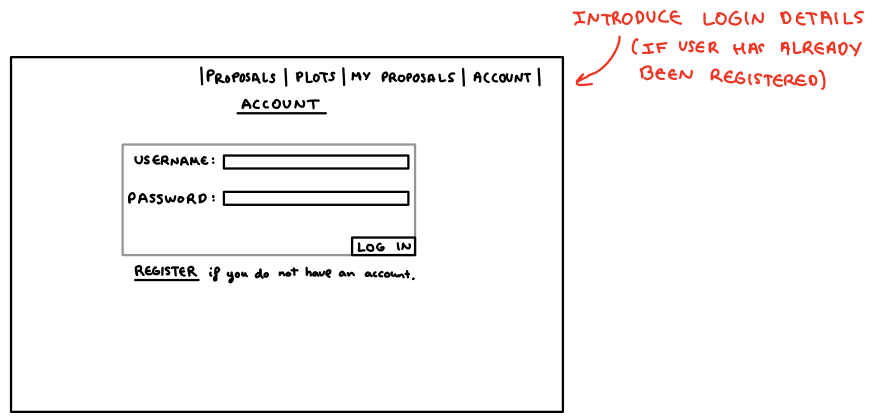 INTRODUCE LOGIN DETAILS
(IF USER HAS ALREADY
BEEN REGISTERED)
|PROPOSALS | PLOTS | MY PROPOSALS | ACCOUNT |
ACCOUNT
USERNAME:
PASSWORD:
LOG IN
REGISTER if you do not have an account.